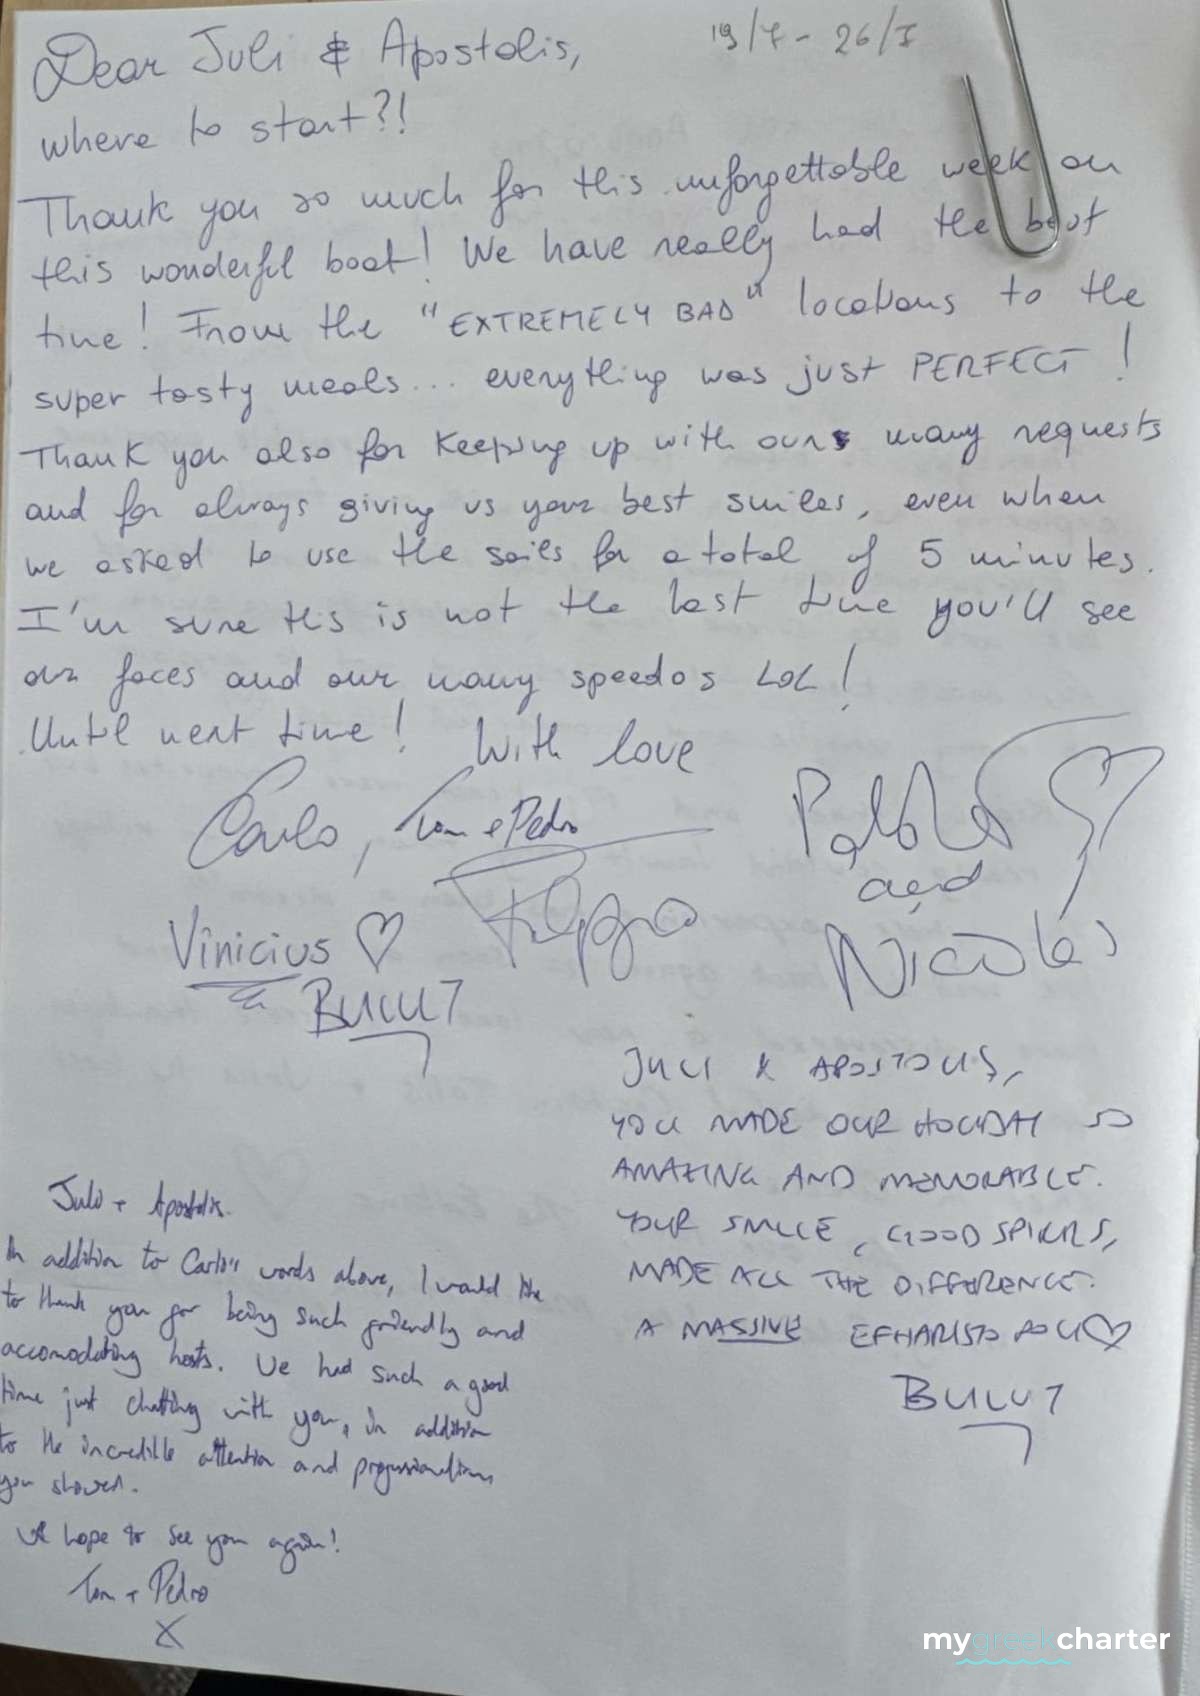 Dear Juli & Apostolis,
19/7 - 26/7
where to start?!
Thank you so much for this unforgettable week on
this wonderful boat! We have really had the best
time! From the "EXTREMELY BAD" locations to the
super tasty meals... everything was just PERFECT!
Thank you also for keeping up with ours many requests
and for always giving us your best smiles, even when
we asked to use the sails for a total of 5 minutes.
I'm sure this is not the last time you'll see
our faces and our many speedos LOL!
Until next time! With love
Carlo, Tom & Pedro
Pablo
and
Filippo
Vinicius
Nicolas
BULUT
JULI & APOSTOLIS,
YOU MADE OUR HOLIDAY SO
AMAZING AND MEMORABLE.
YOUR SMILE, GOOD SPIRITS,
MADE ALL THE DIFFERENCE.
A MASSIVE EFHARISTO POLI
BULUT
Juli + Apostolis.
In addition to Carlo's words above, I would like
to thank you for being such friendly and
accomodating hosts. We had such a good
time just chatting with you, in addition
to the incredible attention and professionalism
you showed.
We hope to see you again!
Tom + Pedro
X
mygreekcharter